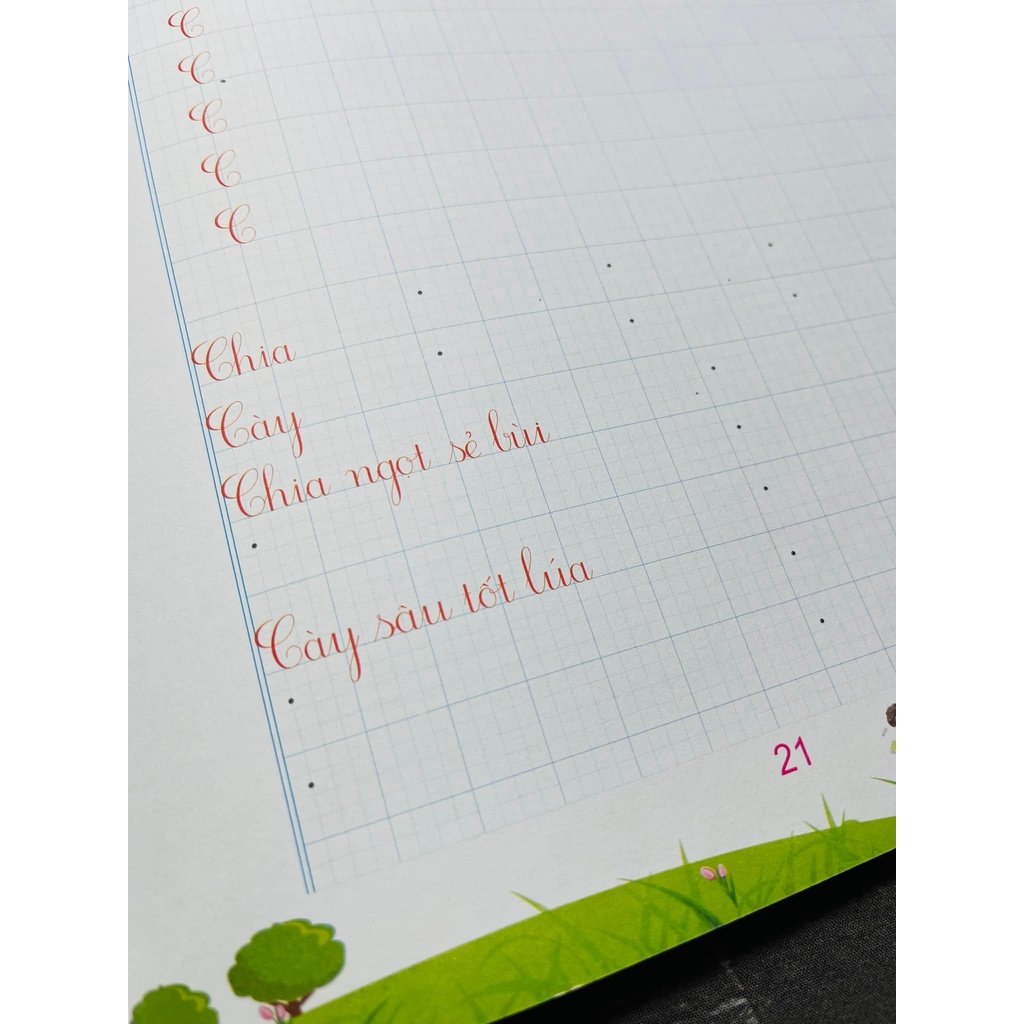 C
C
C
C
C
Chia
Cày
Chia ngọt sẻ bùi
Cày sâu tốt lúa
21